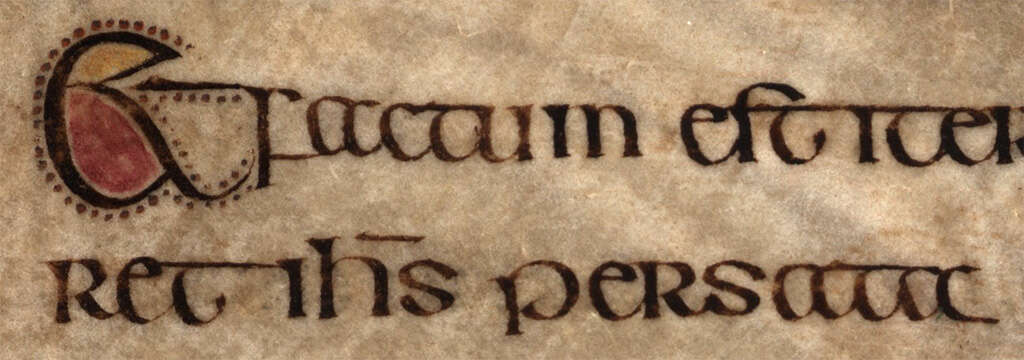 Et factum est iter
ret ih̅s persata